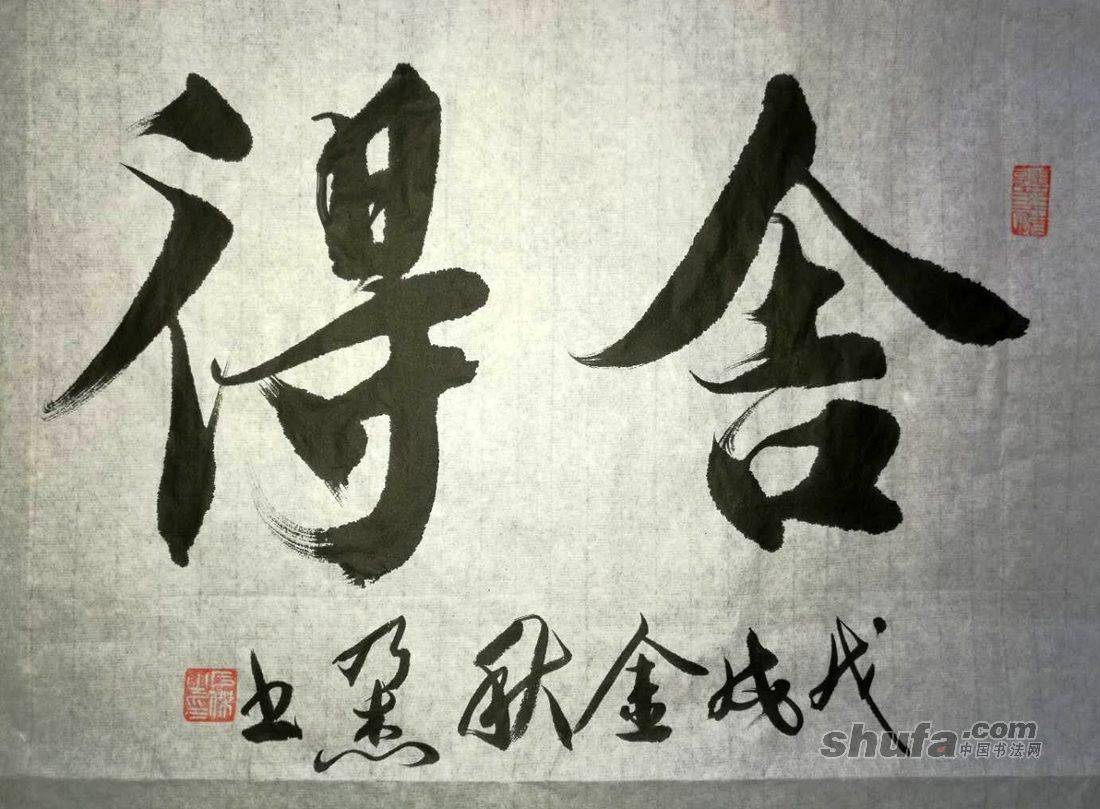 舍得
戊戌金秋 杰书
shufa.com
中国书法网